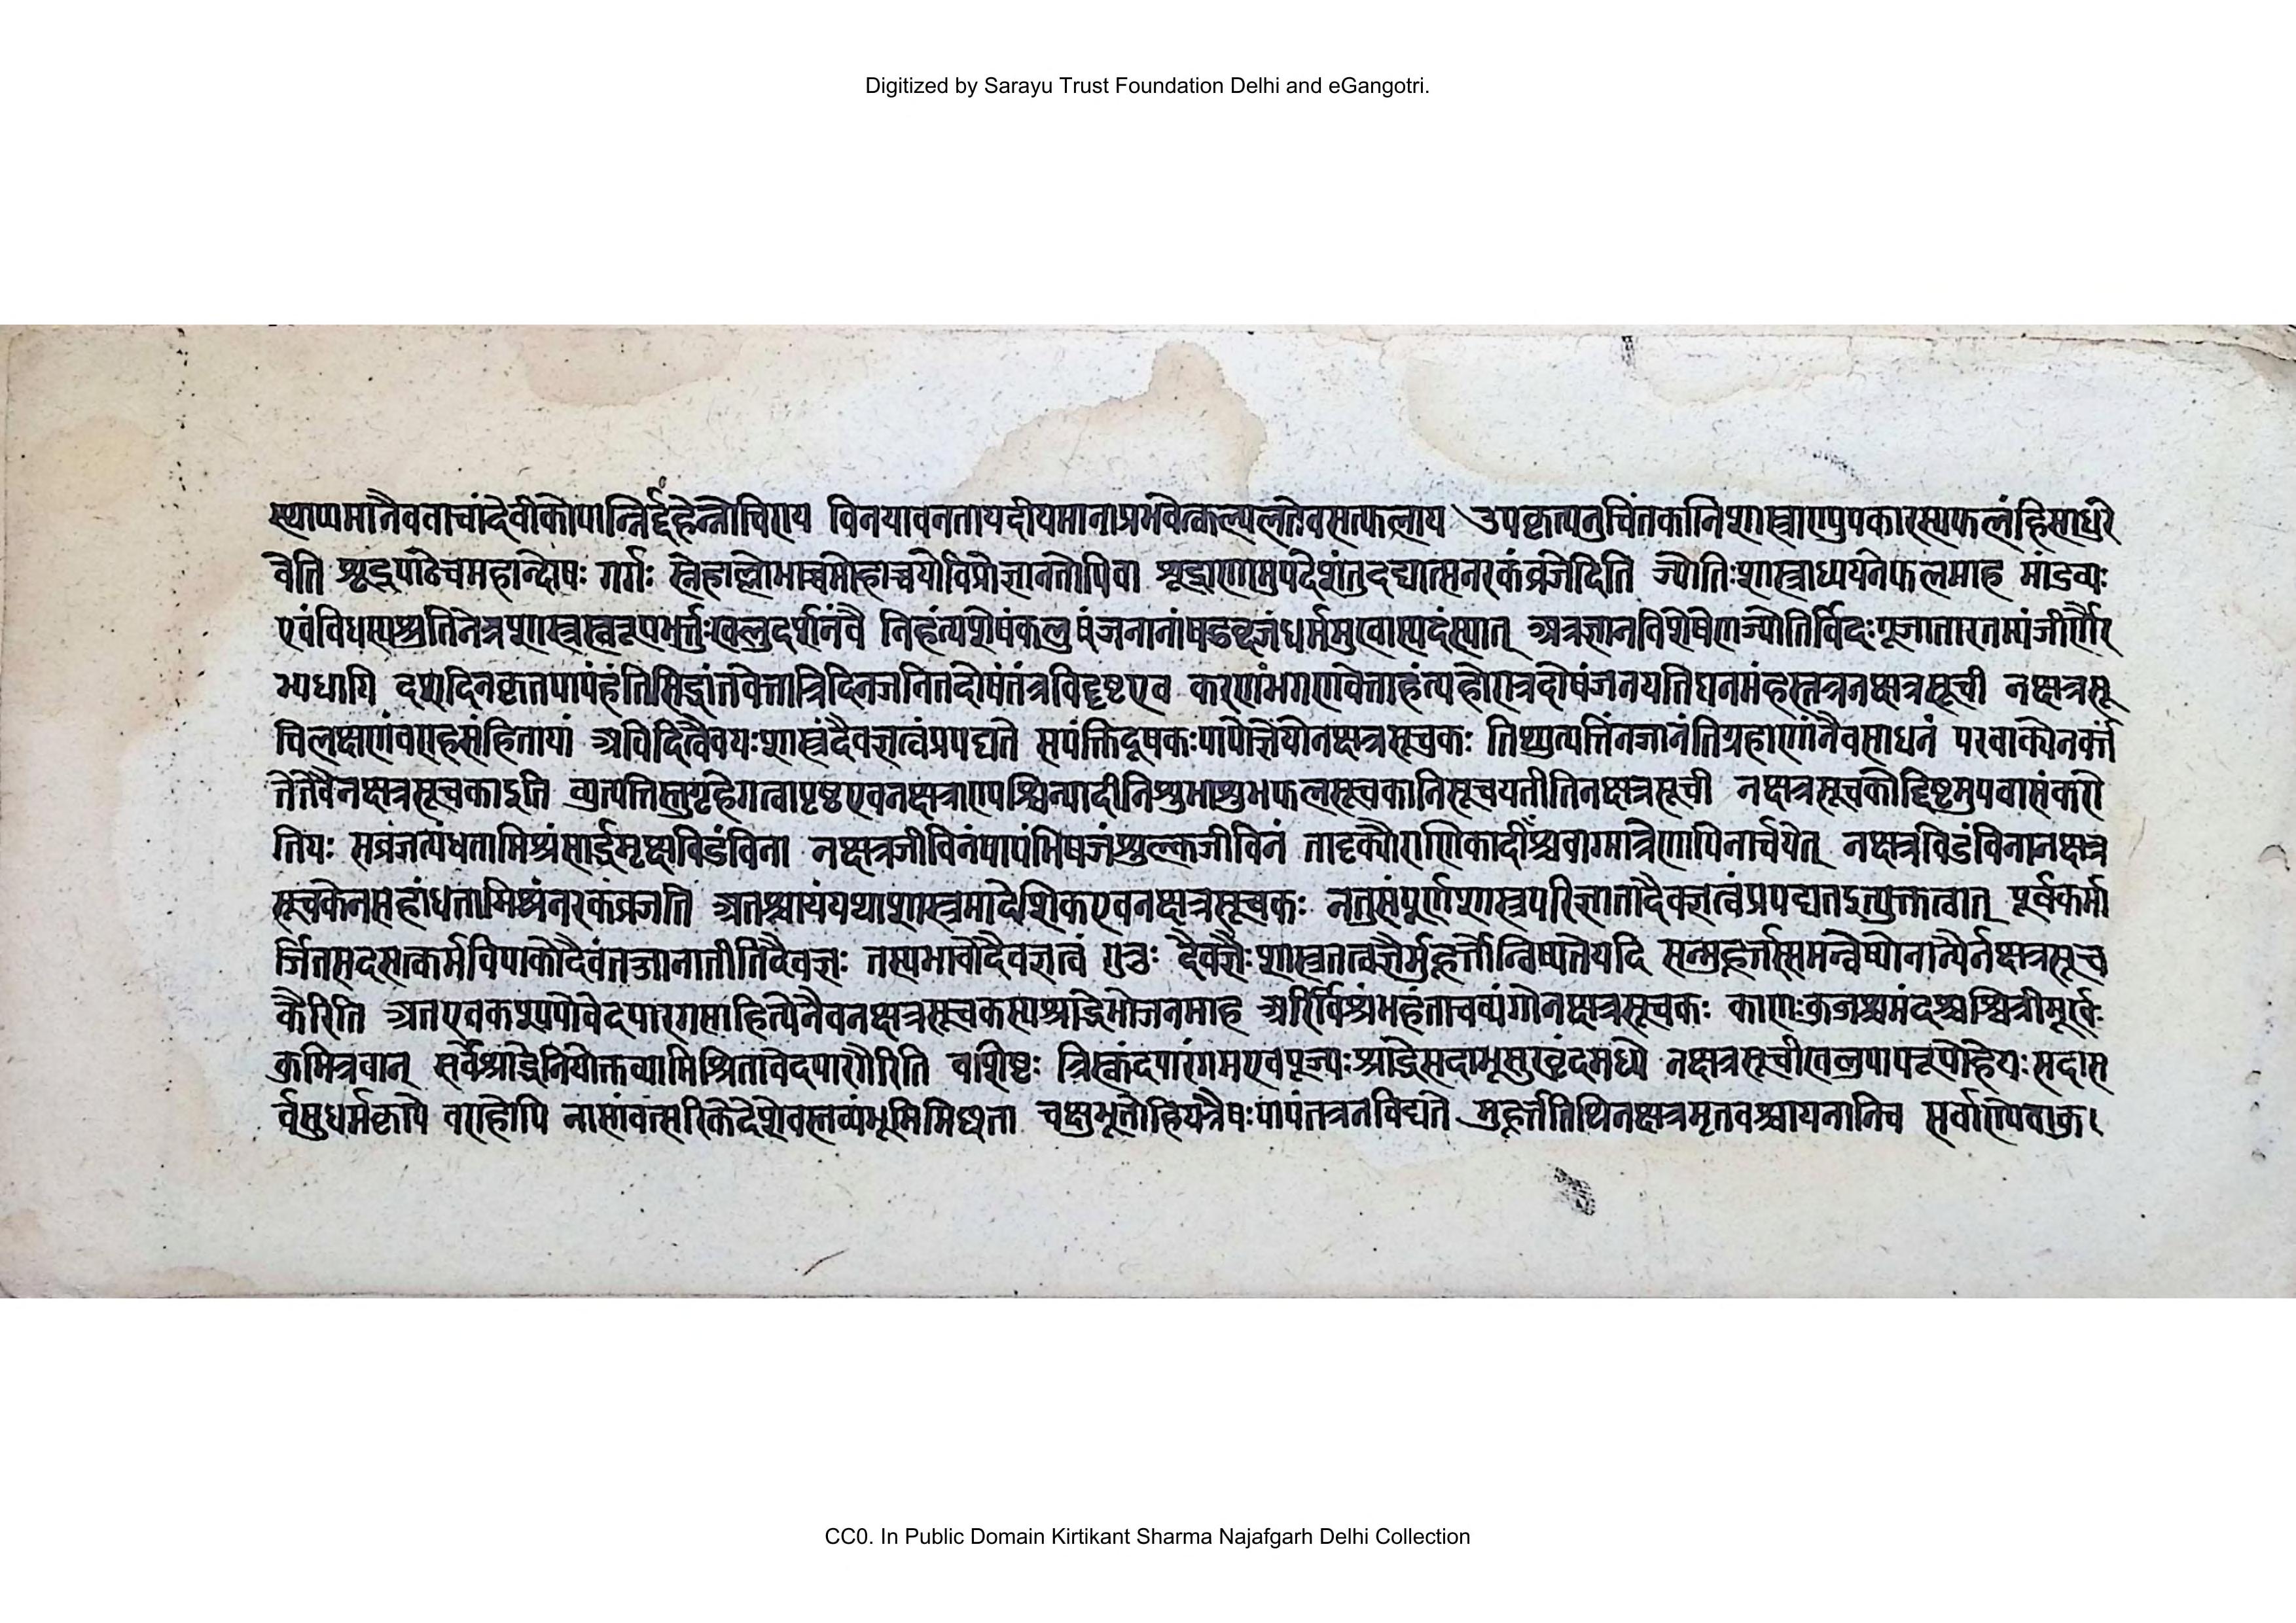 Digitized by Sarayu Trust Foundation Delhi and eGangotri.
स्याप्यमानैववाचांदेवीकोपान्निर्द्दहेन्नोचिराय विनयावनतायदीयमानाप्रभवेत्कल्पलतेवसत्फलाय उपकृत्यनुचिंतकानिशास्त्राण्युपकारस्यफलंहिसाधुरे
वेति शूद्रपाठेचमहान्दोषः गर्गः स्नेहाल्लोभाच्चमोहाच्चयोविप्रोज्ञानतोपिवा शूद्राणामुपदेशंतुदद्यात्सनरकंव्रजेदिति ज्योतिःशास्त्राध्ययनेफलमाह मांडव्यः
एवंविधस्यश्रुतिनेत्रशास्त्रस्वरूपभर्त्तुःखलुदर्शनंवै निहंत्यशेषंकलुषंजनानांषडब्दजंधर्मसुखास्पदंस्यात् अत्रज्ञानविशेषेणज्योतिर्विदःपूजातारतम्यंजीर्णैर
भ्यधायि दशदिनकृतपापंहंतिसिद्धांतवेत्तात्रिदिनजनितदोषंतंत्रविद्दृष्टएव करणभगणवेत्ताहंत्यहोरात्रदोषंजनयतिघनमंहस्तत्रनक्षत्रसूची नक्षत्रसू
चिलक्षणंवराहसंहितायां अविदित्वैवयःशास्त्रंदैवज्ञत्वंप्रपद्यते सपंक्तिदूषकःपापोज्ञेयोनक्षत्रसूचकः तिथ्युत्पत्तिंनजानंतिग्रहाणांनैवसाधनं परवाक्येनवर्त्तं
तेतेवैनक्षत्रसूचकाइति व्युत्पत्तिस्तुगृहेगत्वापृष्टएवनक्षत्राण्यश्विन्यादीनिशुभाशुभफलसूचकानिसूचयतीतिनक्षत्रसूची नक्षत्रसूचकोद्दिष्टमुपवासंकरो
तियः सव्रजत्यंधतामिश्रंसार्द्धमृक्षविडंविना नक्षत्रजीविनंपापंभिषजंशुल्कजीविनं तादृक्पौराणिकादींश्चवाग्मात्रेणापिनार्चयेत् नक्षत्रविडंविनानक्षत्र
सूचकेनसहांधतामिश्रंनरकंव्रजति अतश्चायंयथाशास्त्रमादेशिकएवनक्षत्रसूचकः नतुसंपूर्णशास्त्रपरिज्ञातादैवज्ञत्वंप्रपद्यतइत्युक्तत्वात् पूर्वकर्मा
र्जितसदसत्कर्मविपाकोदैवंतज्जानातीतिदैवज्ञः तस्यभावोदैवज्ञत्वं दैवज्ञैःशास्त्रतत्वज्ञैर्मुहूर्त्तोन्विष्यतेयदि सन्मुहूर्त्तस्समन्वेष्योनान्यैर्नक्षत्रसूच
कैरिति अतएवकश्यपोवेदपारगसाहित्येनैवनक्षत्रसूचकस्यश्राद्धेभोजनमाह काणःकुब्जश्चमंदश्चश्वित्रीमूर्खः
कृमित्रवान् सर्वेश्राद्धेनियोक्तव्यामिश्रितावेदपारगैरिति वाशिष्टः त्रिस्कंदपारंगमएवपूज्यःश्राद्धेसदाभूसुरवृंदमध्ये नक्षत्रसूचीखलुपापरूपोहेयःसदास
र्वसुधर्मकृत्ये वराहोपि नासांवत्सरिकेदेशेवस्तव्यंभूमिमिच्छता चक्षुभूतोहियत्रैषःपापंतत्रनविद्यते मुहूर्त्ततिथिनक्षत्रमृतवश्चायनानिच सर्वाण्येवाकु
CC0. In Public Domain Kirtikant Sharma Najafgarh Delhi Collection